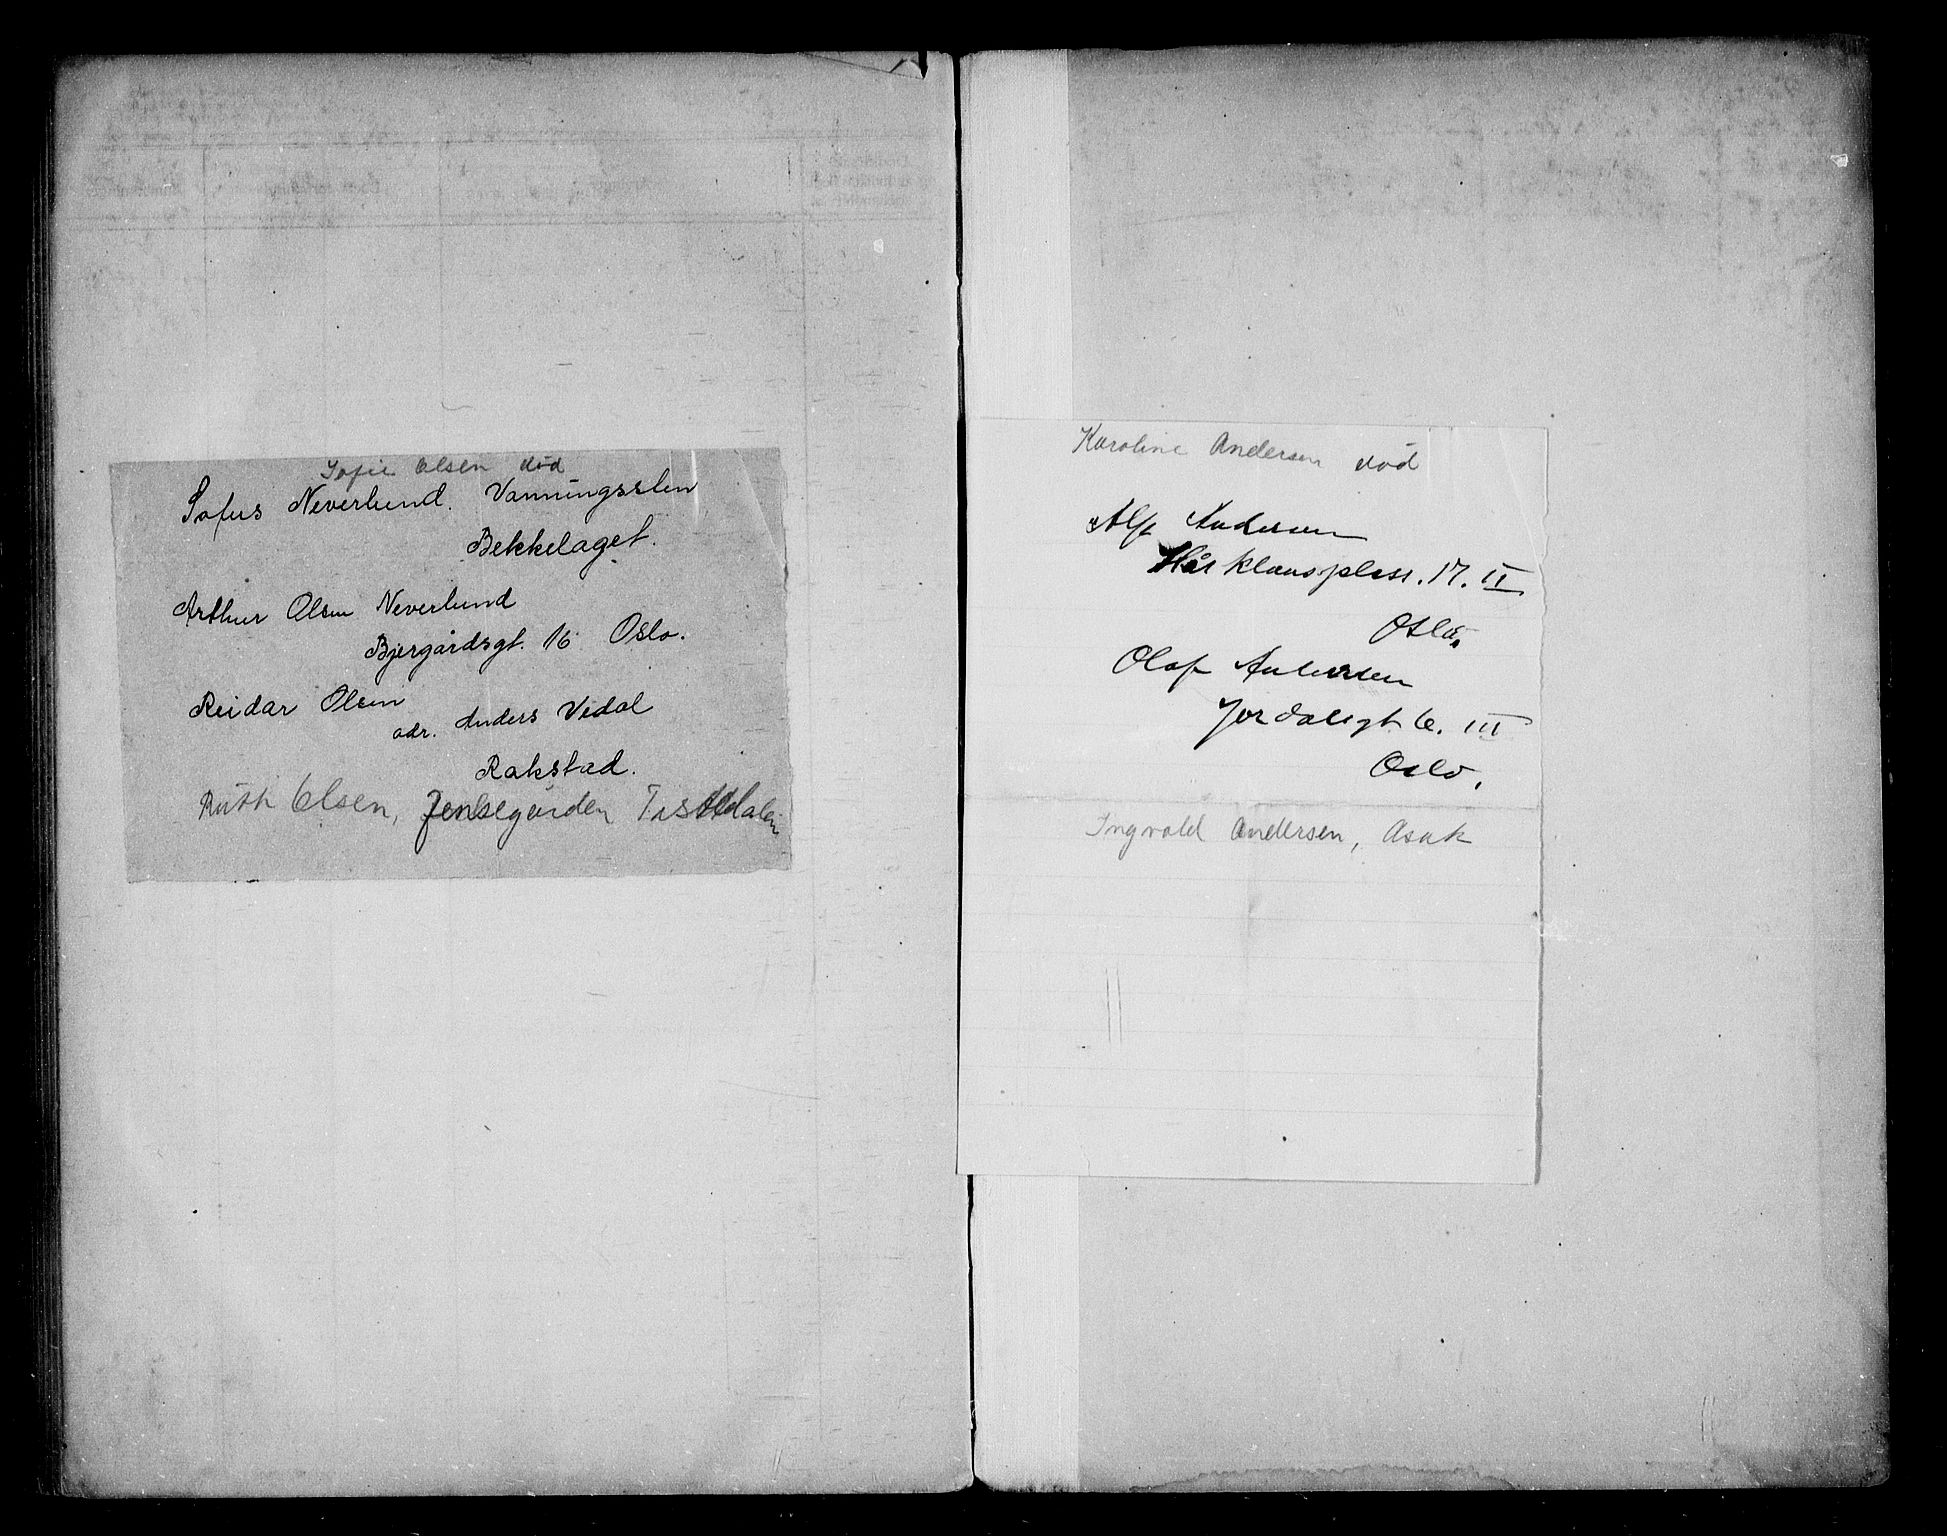 Sofie Olsen død
Sofus Neverlund. Vanningsslen
Bekkelaget.
Arthur Olsen Neverlund
Bjergårdsgt. 16 Oslo.
Reidar Olsen
adr. Anders Vedal
Rakstad.
Ruth Olsen, Jensegården Tistedalen
Karoline Andersen død
Alf Andersen
Hårklousplass. 17. II
Oslo.
Olaf Andersen
Jordalsgt 6. III
Oslo.
Ingvald Andersen, Asak